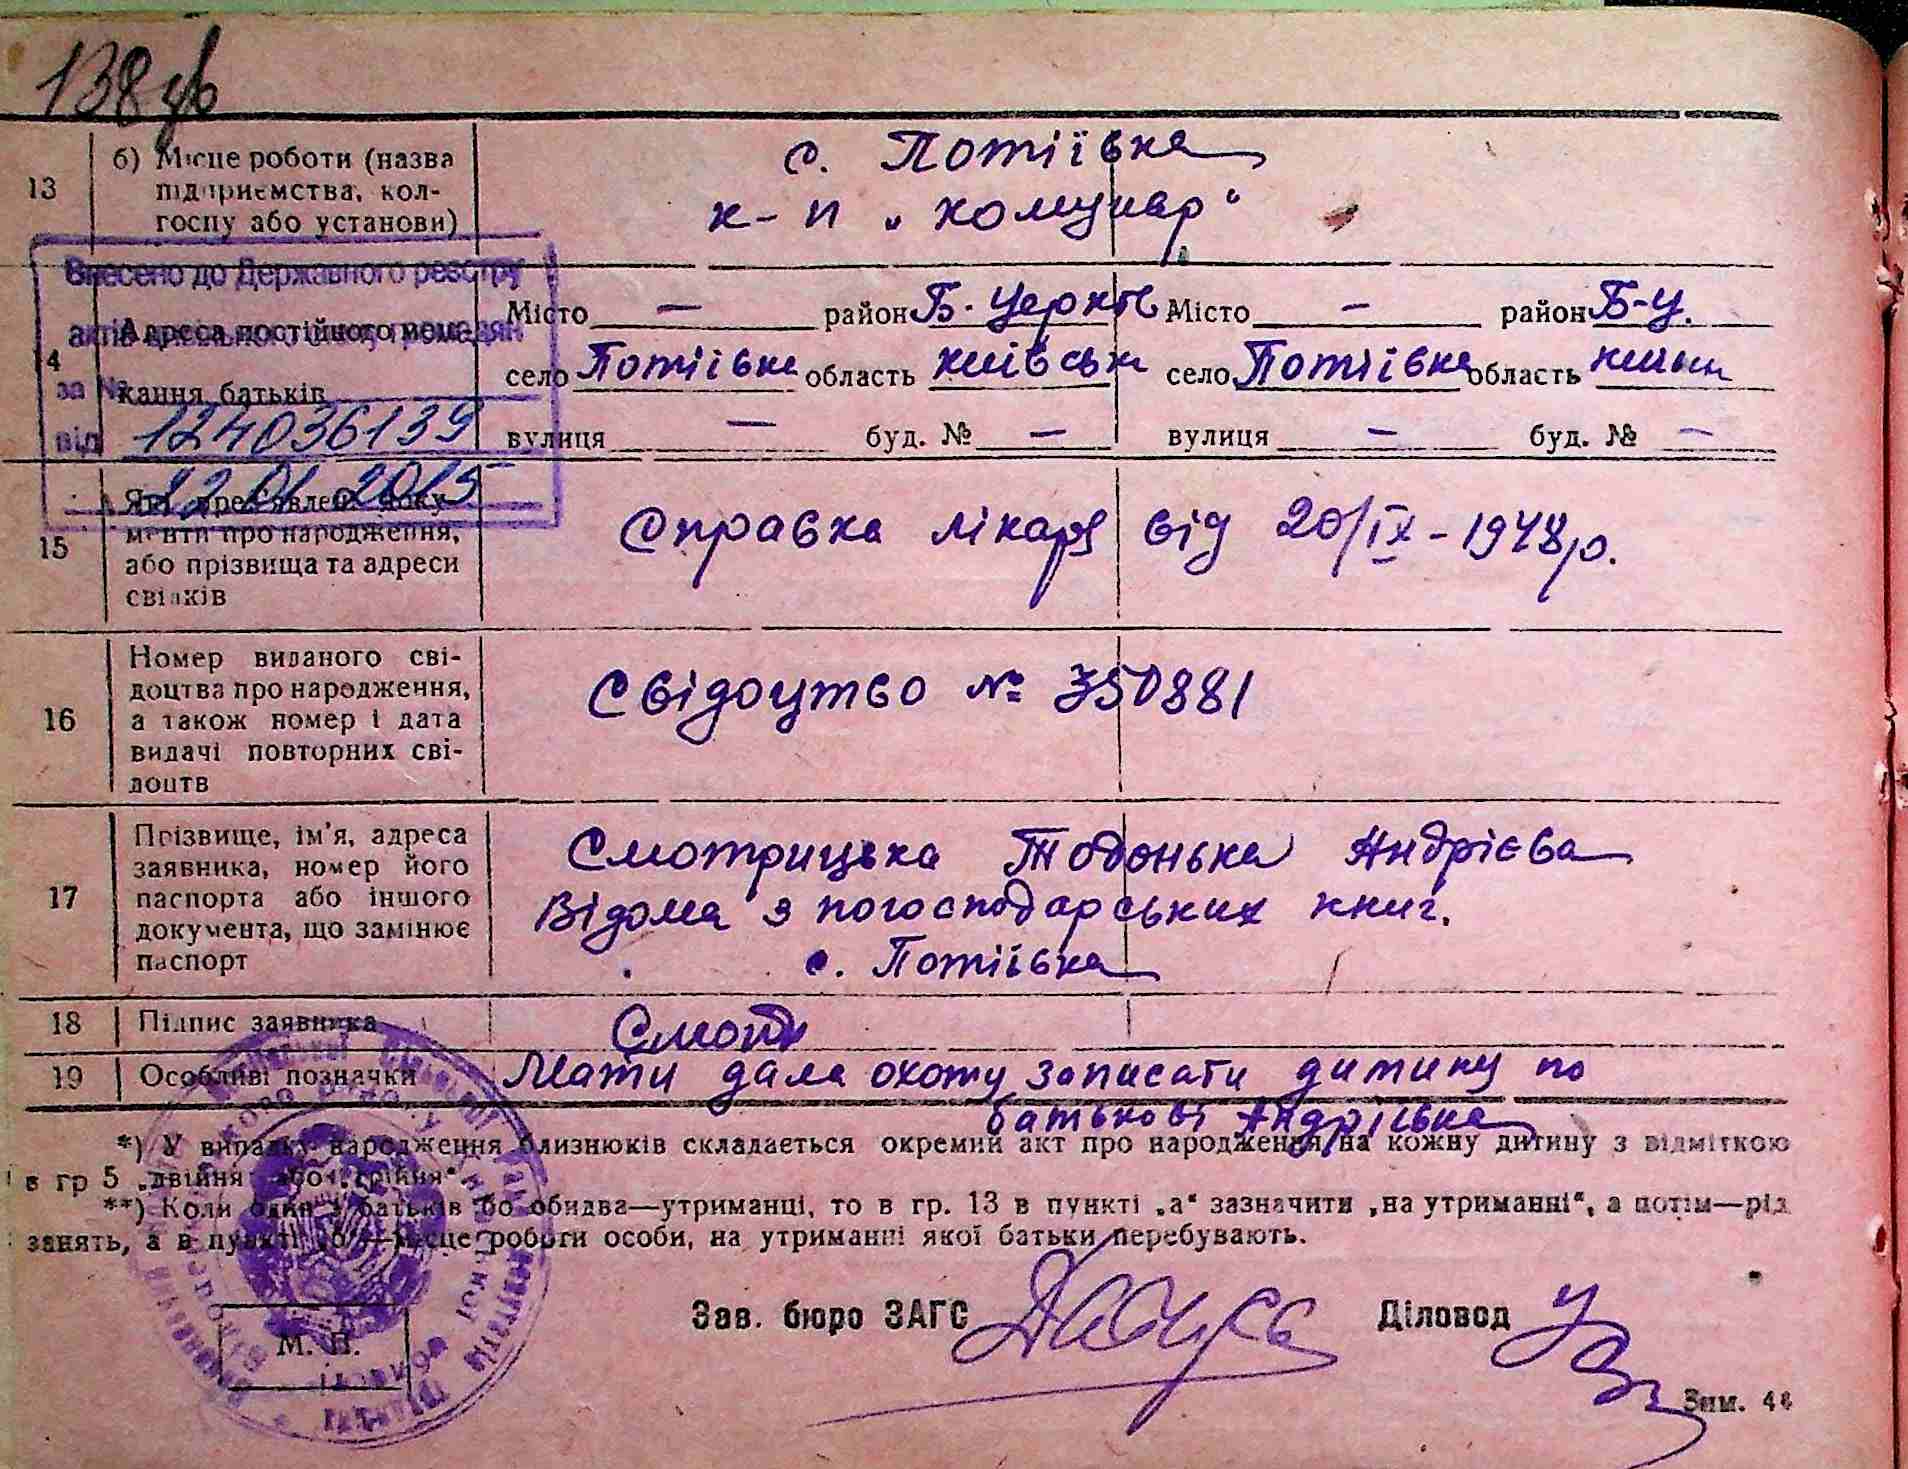 138 зв
13 б) Місце роботи (назва підприємства, колгоспу або установи)
с. Потіївка
к-п „комунар“
Внесено до Державного реєстру
актів громадян
за №
124036139
від 12 01 2015
14 Адреса постійного мешкання батьків
Місто — район Б. Церків Місто — район Б-Ц.
село Потіївка область київськ село Потіївка область київ
вулиця — буд. № — вулиця — буд. № —
15 Які пред'явлені документи про народження, або прізвища та адреси свідків
Справка лікаря від 20/IX-1948р.
16 Номер виданого свідоцтва про народження, а також номер і дата видачі повторних свідоцтв
Свідоцтво № 350881
17 Прізвище, ім'я, адреса заявника, номер його паспорта або іншого документа, що замінює паспорт
Смотрицька Тодонька Андрієва
Відома з погосподарських книг.
с. Потіївка
18 Підпис заявника
Смотр
19 Особливі позначки
Мати дала охоту записати дитину по
батькові Андріївна
*) У випадку народження близнюків складається окремий акт про народження на кожну дитину з відміткою
в гр 5 „двійня“ або „трійня“.
**) Коли один з батьків бо обидва—утриманці, то в гр. 13 в пункті „а“ зазначити „на утриманні“, а потім—рід
занять, а в пункті „б“—місце роботи особи, на утриманні якої батьки перебувають.
Зав. бюро ЗАГС Діловод
М. П.
Зам. 44